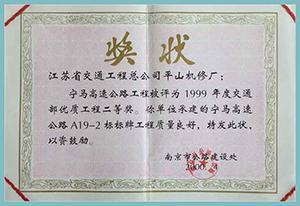 奖状
江苏省交通工程总公司平山机修厂:
宁马高速公路工程被评为1999年度交通
部优质工程二等奖。你单位承建的宁马高速
公路A19-2标标牌工程质量良好,特发此状,
以资鼓励。
南京市公路建设处
2000.4